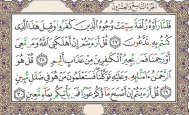 فَلَمَّا رَأَوْهُ زُلْفَةً سِيٓـَٔتْ وُجُوهُ ٱلَّذِينَ كَفَرُوا۟ وَقِيلَ هَٰذَا ٱلَّذِى
كُنتُم بِهِۦ تَدَّعُونَ ٢٧ قُلْ أَرَءَيْتُمْ إِنْ أَهْلَكَنِىَ ٱللَّهُ وَمَن مَّعِىَ
أَوْ رَحِمَنَا فَمَن يُجِيرُ ٱلْكَٰفِرِينَ مِنْ عَذَابٍ أَلِيمٍ ٢٨ قُلْ هُوَ
ٱلرَّحْمَٰنُ ءَامَنَّا بِهِۦ وَعَلَيْهِ تَوَكَّلْنَا فَسَتَعْلَمُونَ مَنْ هُوَ فِى ضَلَٰلٍ
مُّبِينٍ ٢٩ قُلْ أَرَءَيْتُمْ إِنْ أَصْبَحَ مَآؤُكُمْ غَوْرًا فَمَن يَأْتِيكُم بِمَآءٍ مَّعِينٍۭ ٣٠